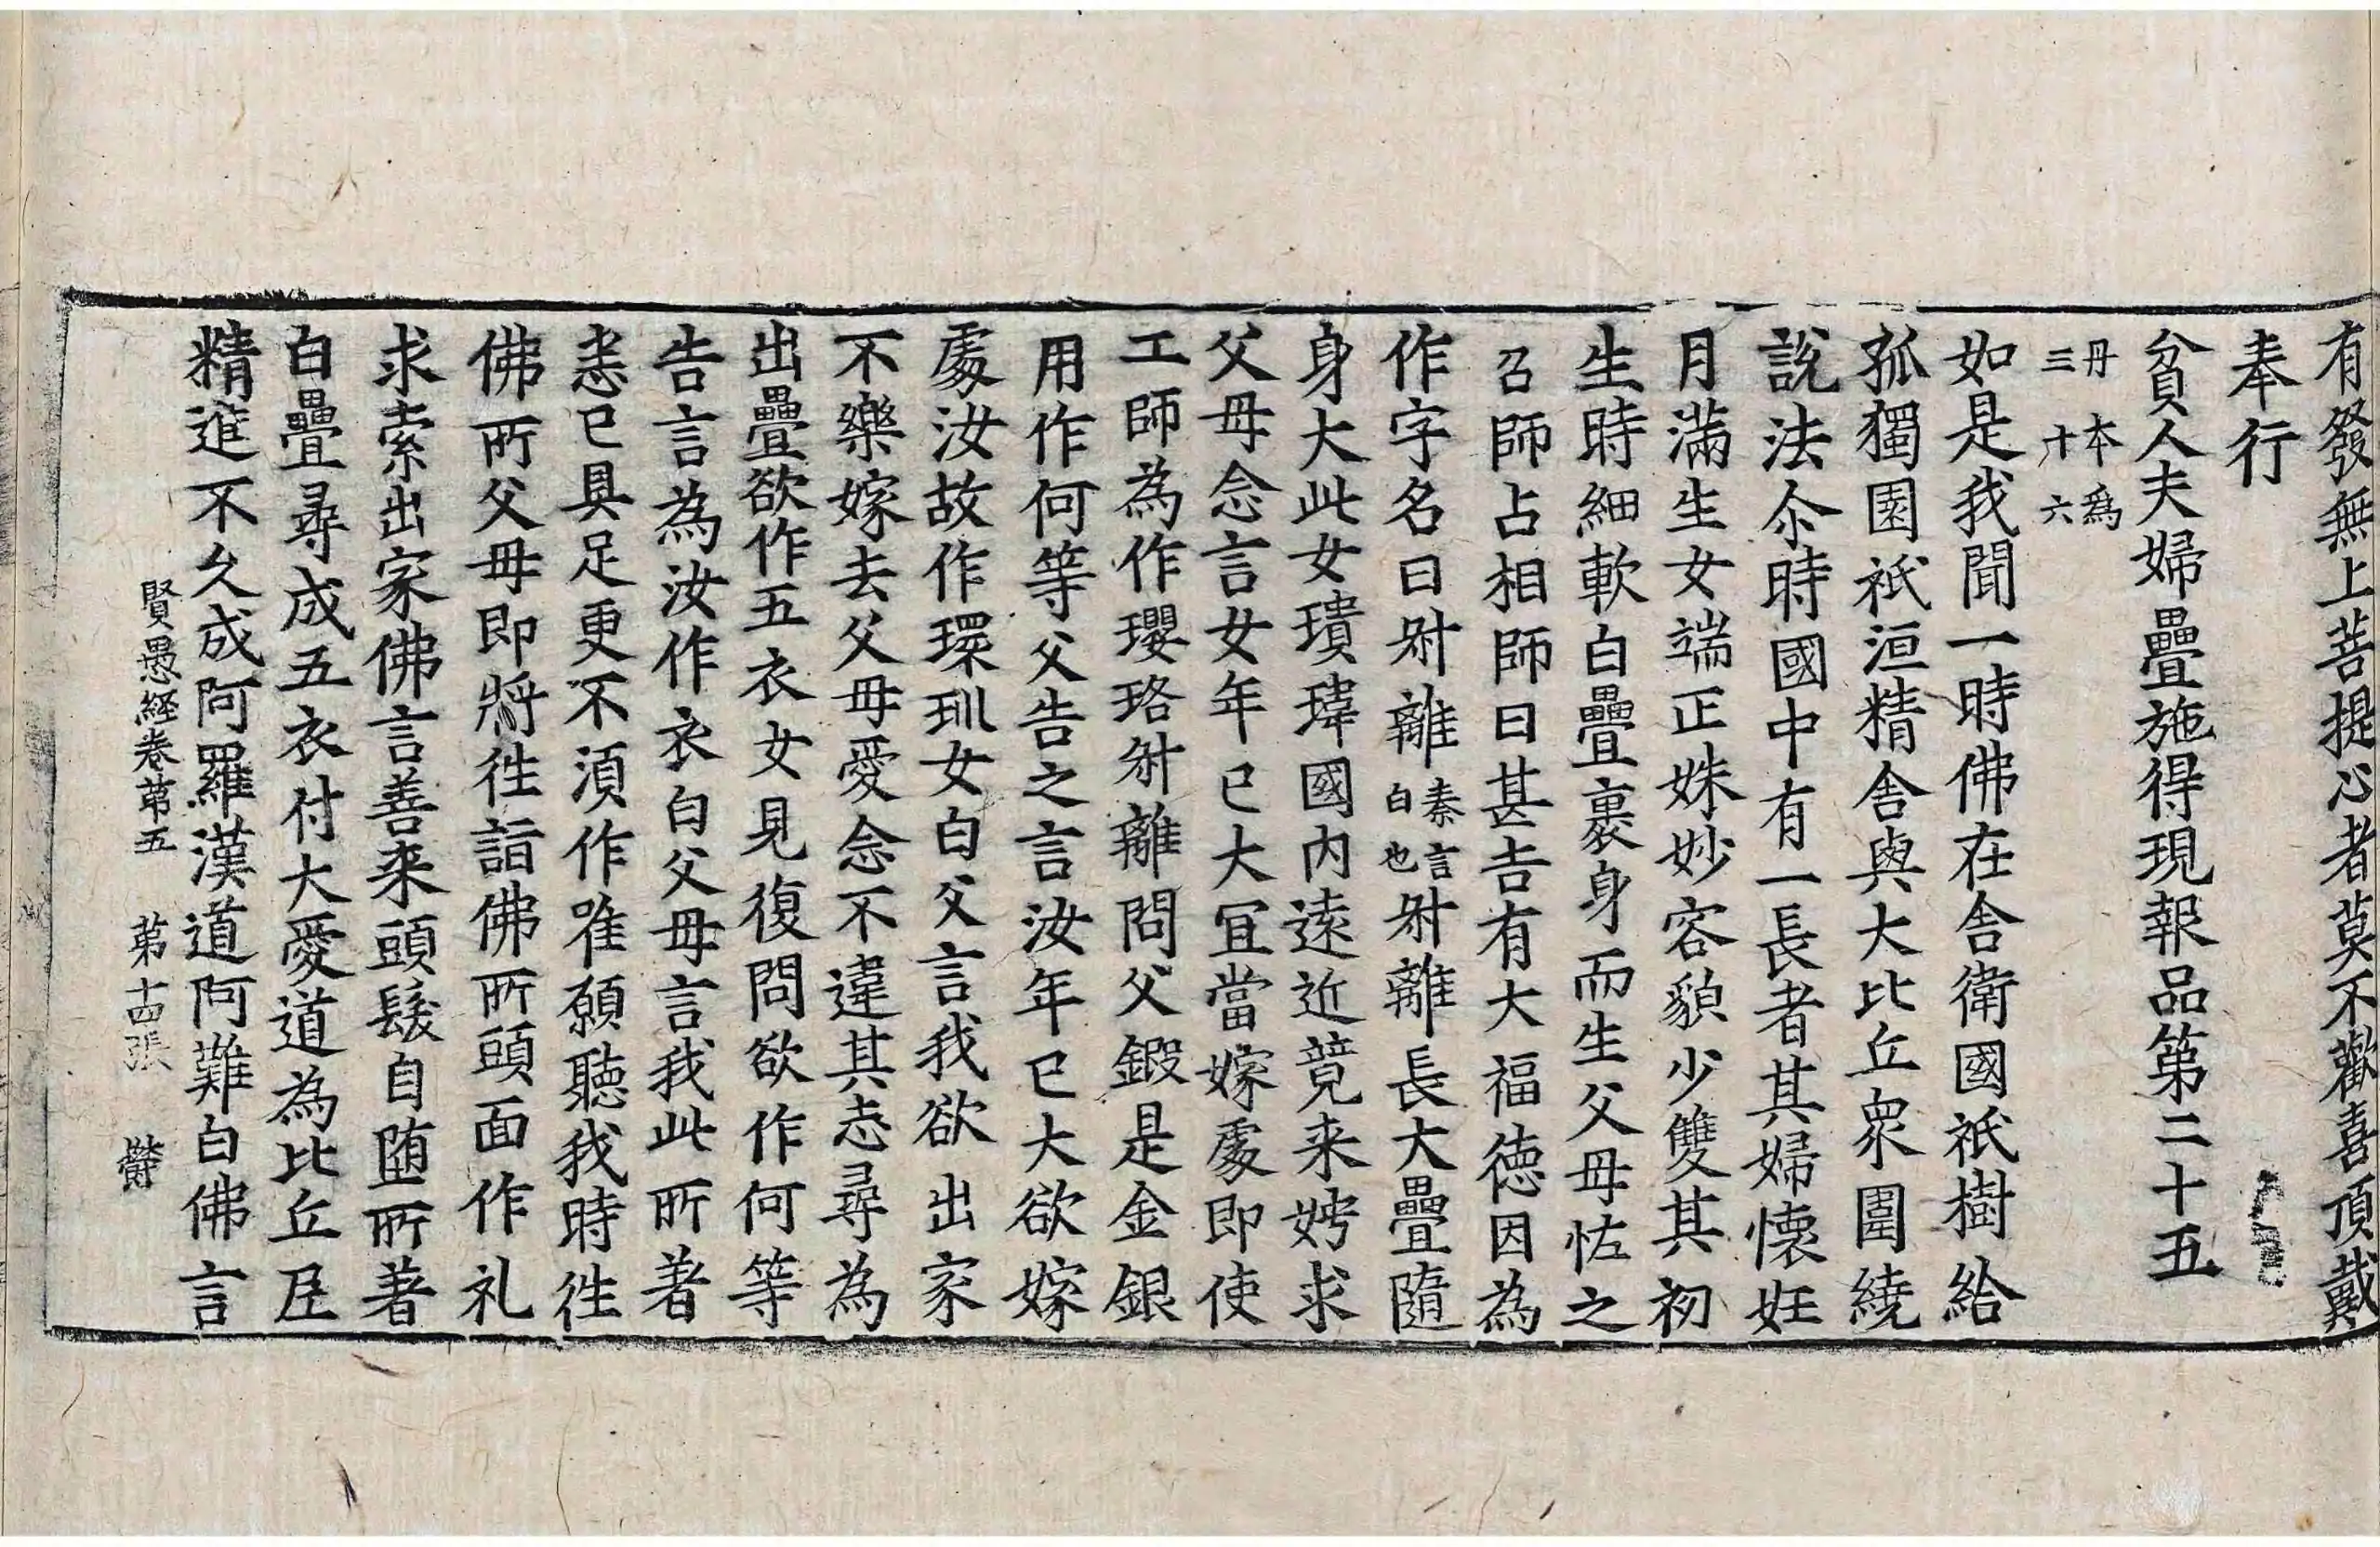 有發無上菩提心者莫不歡喜頂戴
奉行
貧人夫婦疊施得現報品第二十五
丹本爲
三十六
如是我聞一時佛在舎衛國祇樹給
孤獨園祇洹精舎與大比丘衆圍繞
說法尒時國中有一長者其婦懷妊
月滿生女端正姝妙容貌少雙其初
生時細軟白疊裹身而生父母恠之
召師占相師曰甚吉有大福徳因為
作字名曰㪷離秦言白也㪷離長大疊隨
身大此女瓌瑋國内遠近竟来娉求
父母念言女年已大宜當嫁處即使
工師為作瓔珞㪷離問父鍛是金銀
用作何等父告之言汝年已大欲嫁
處汝故作環玔女白父言我欲出家
不樂嫁去父母愛念不違其志尋為
出疊欲作五衣女見復問欲作何等
告言為汝作衣白父母言我此所著
悉已具足更不湏作唯願聽我時徃
佛所父母即將徃詣佛所頭面作礼
求索出家佛言善来頭髮自墮所著
白疊尋成五衣付大愛道為比丘尼
精進不久成阿羅漢道阿難白佛言
賢愚経卷第五　第十四張　欝